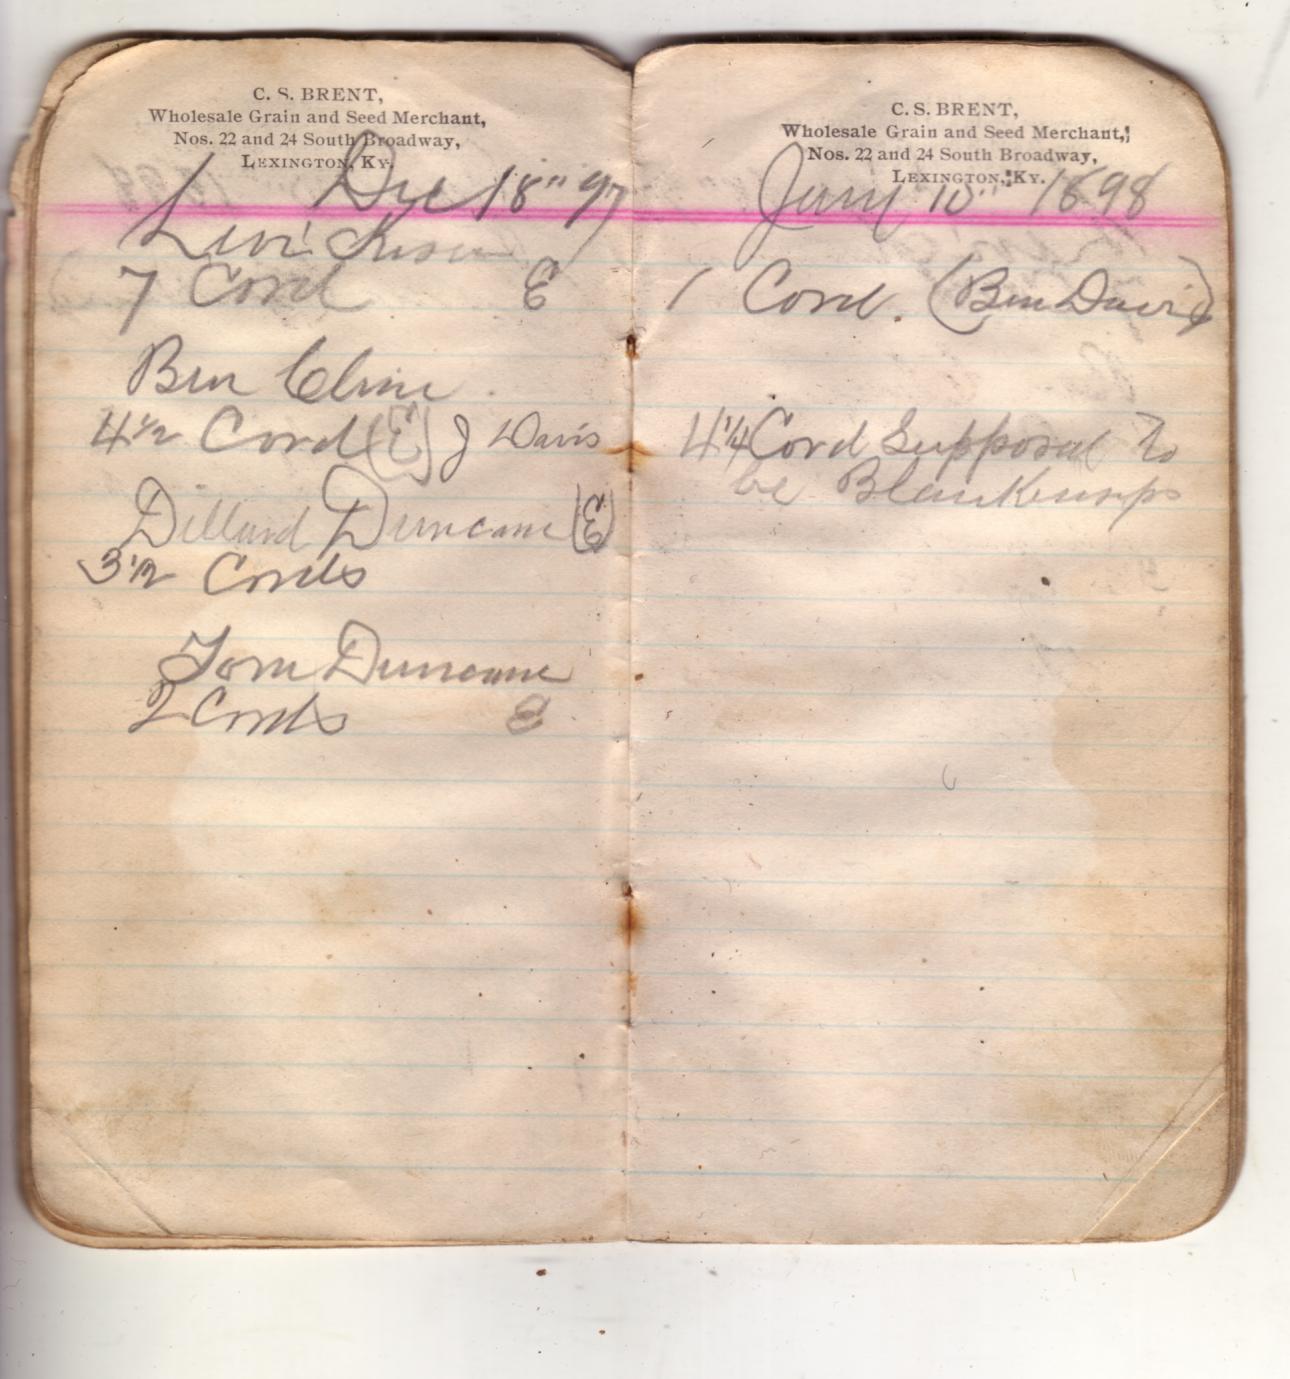 C. S. BRENT,
Wholesale Grain and Seed Merchant,
Nos. 22 and 24 South Broadway,
LEXINGTON, KY.
Dec 18" 97
Levi
7 Cord E
Ben Cline
4 1/2 Cord (E) J Davis
Dillard Duncane (E)
3 1/2 Cords
Tom Duncane
2 Cords E
C. S. BRENT,
Wholesale Grain and Seed Merchant,
Nos. 22 and 24 South Broadway,
LEXINGTON, KY.
Jany 10" 1898
1 Cord. (Ben Davis)
4 1/4 Cord Supposed to
be Blankenships